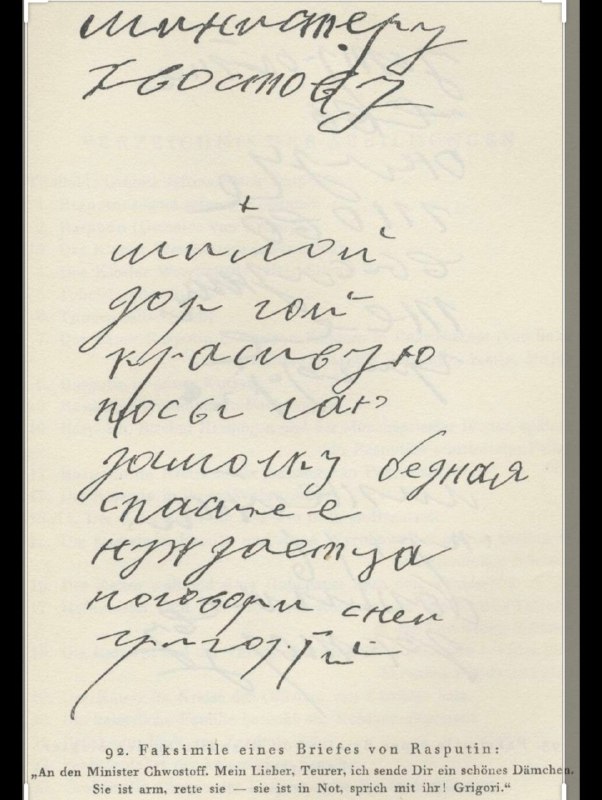 министеру
хвостову
+
милой
дор гой
красивую
посы лаю
дамочку бедная
спаси ее
нуждаетца
поговори сней
григорїй
92. Faksimile eines Briefes von Rasputin:
„An den Minister Chwostoff. Mein Lieber, Teurer, ich sende Dir ein schönes Dämchen.
Sie ist arm, rette sie — sie ist in Not, sprich mit ihr! Grigori.“